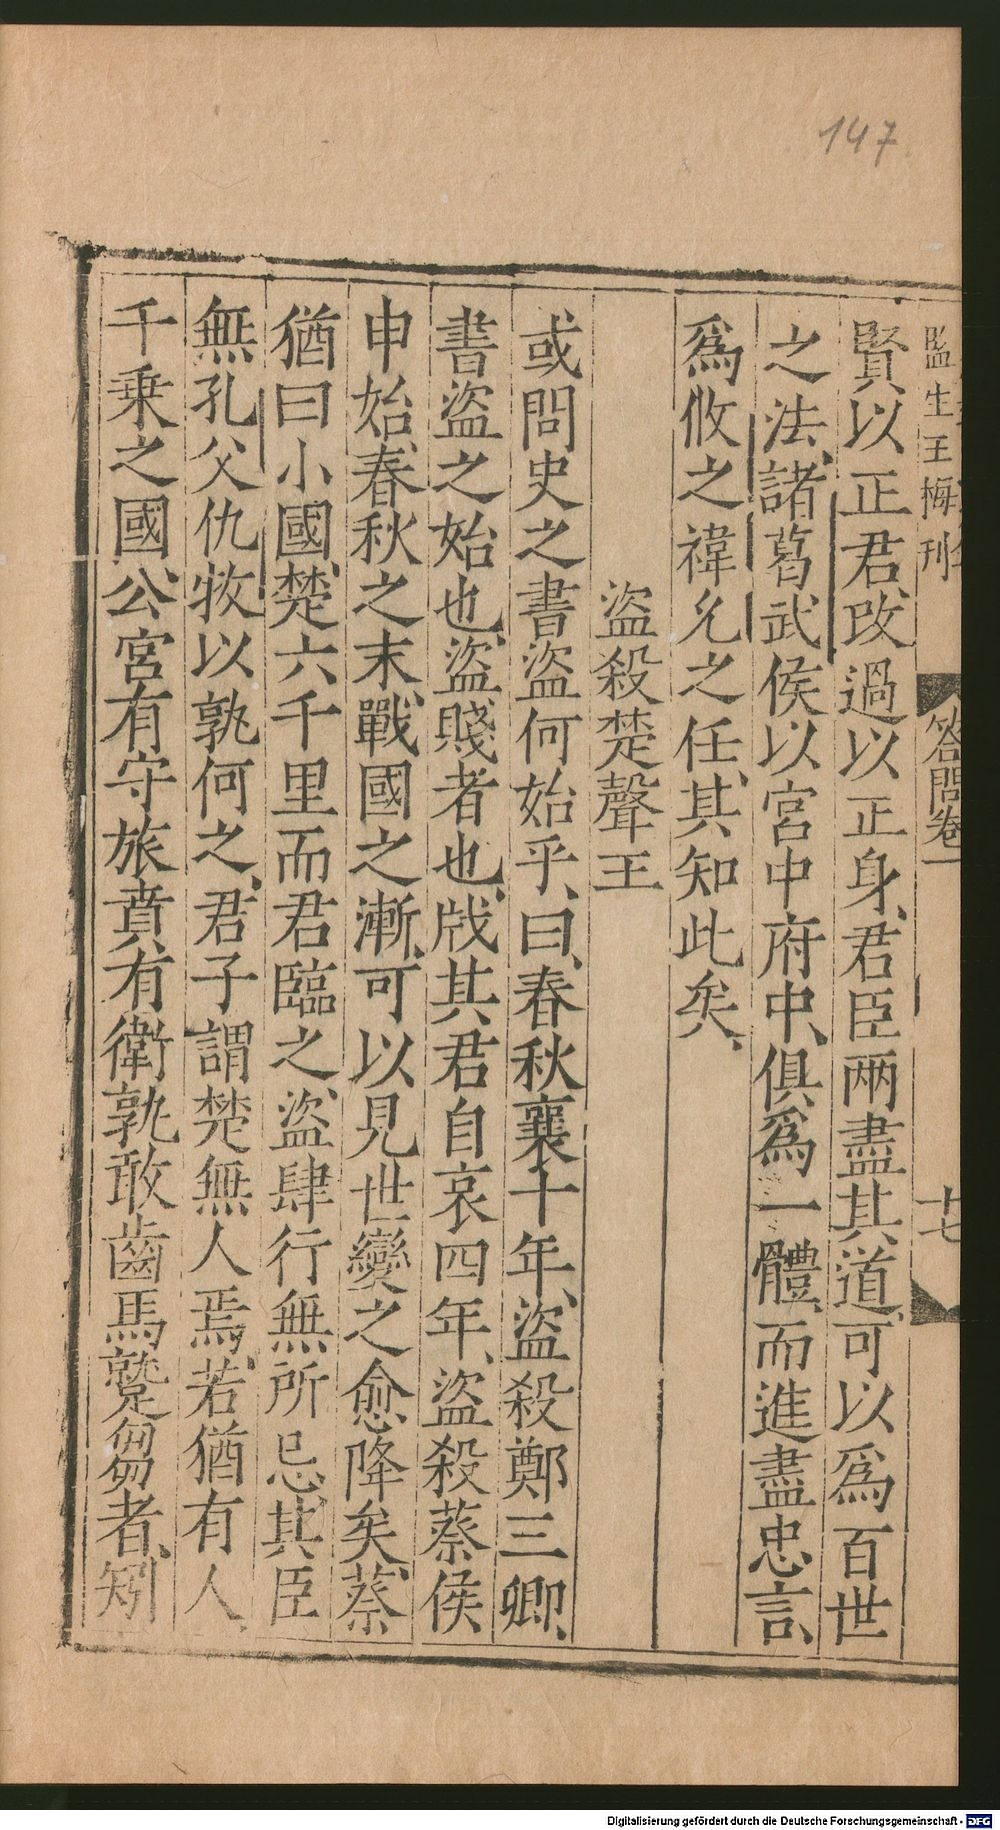 147
監生王梅刊
答問卷一
十七
賢以正君、改過以正身、君臣兩盡其道、可以爲百世
之法、諸葛武侯以宮中府中、俱爲一體、而進盡忠言、
爲攸之褘允之任、其知此矣、
盜殺楚聲王
或問史之書盜何始乎、曰、春秋襄十年、盜殺鄭三卿、
書盜之始也、盜賤者也、戕其君自哀四年、盜殺蔡侯
申始、春秋之末、戰國之漸、可以見世變之愈降矣、蔡
猶曰小國、楚六千里而君臨之、盜肆行無所忌、其臣
無孔父仇牧以孰何之、君子謂楚無人焉、若猶有人、
千乗之國、公宮有守、旅賁有衛、孰敢齒馬蹵芻者、矧
Digitalisierung gefördert durch die Deutsche Forschungsgemeinschaft - DFG